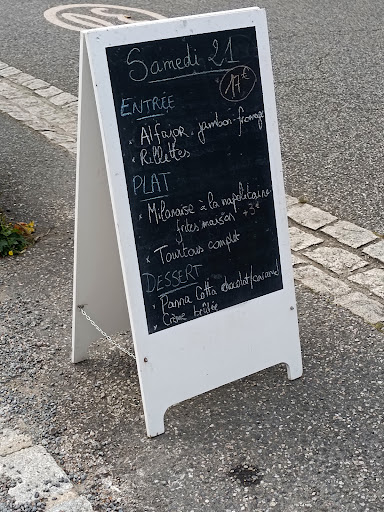 Samedi 21
17€
ENTRÉE
x Alfajor jambon-fromage
x Rillettes
PLAT
x Milanaise à la napolitaine
frites maison +3€
x Tourtous complet
DESSERT
x Panna Cotta chocolat/caramel
x Crème brûlée